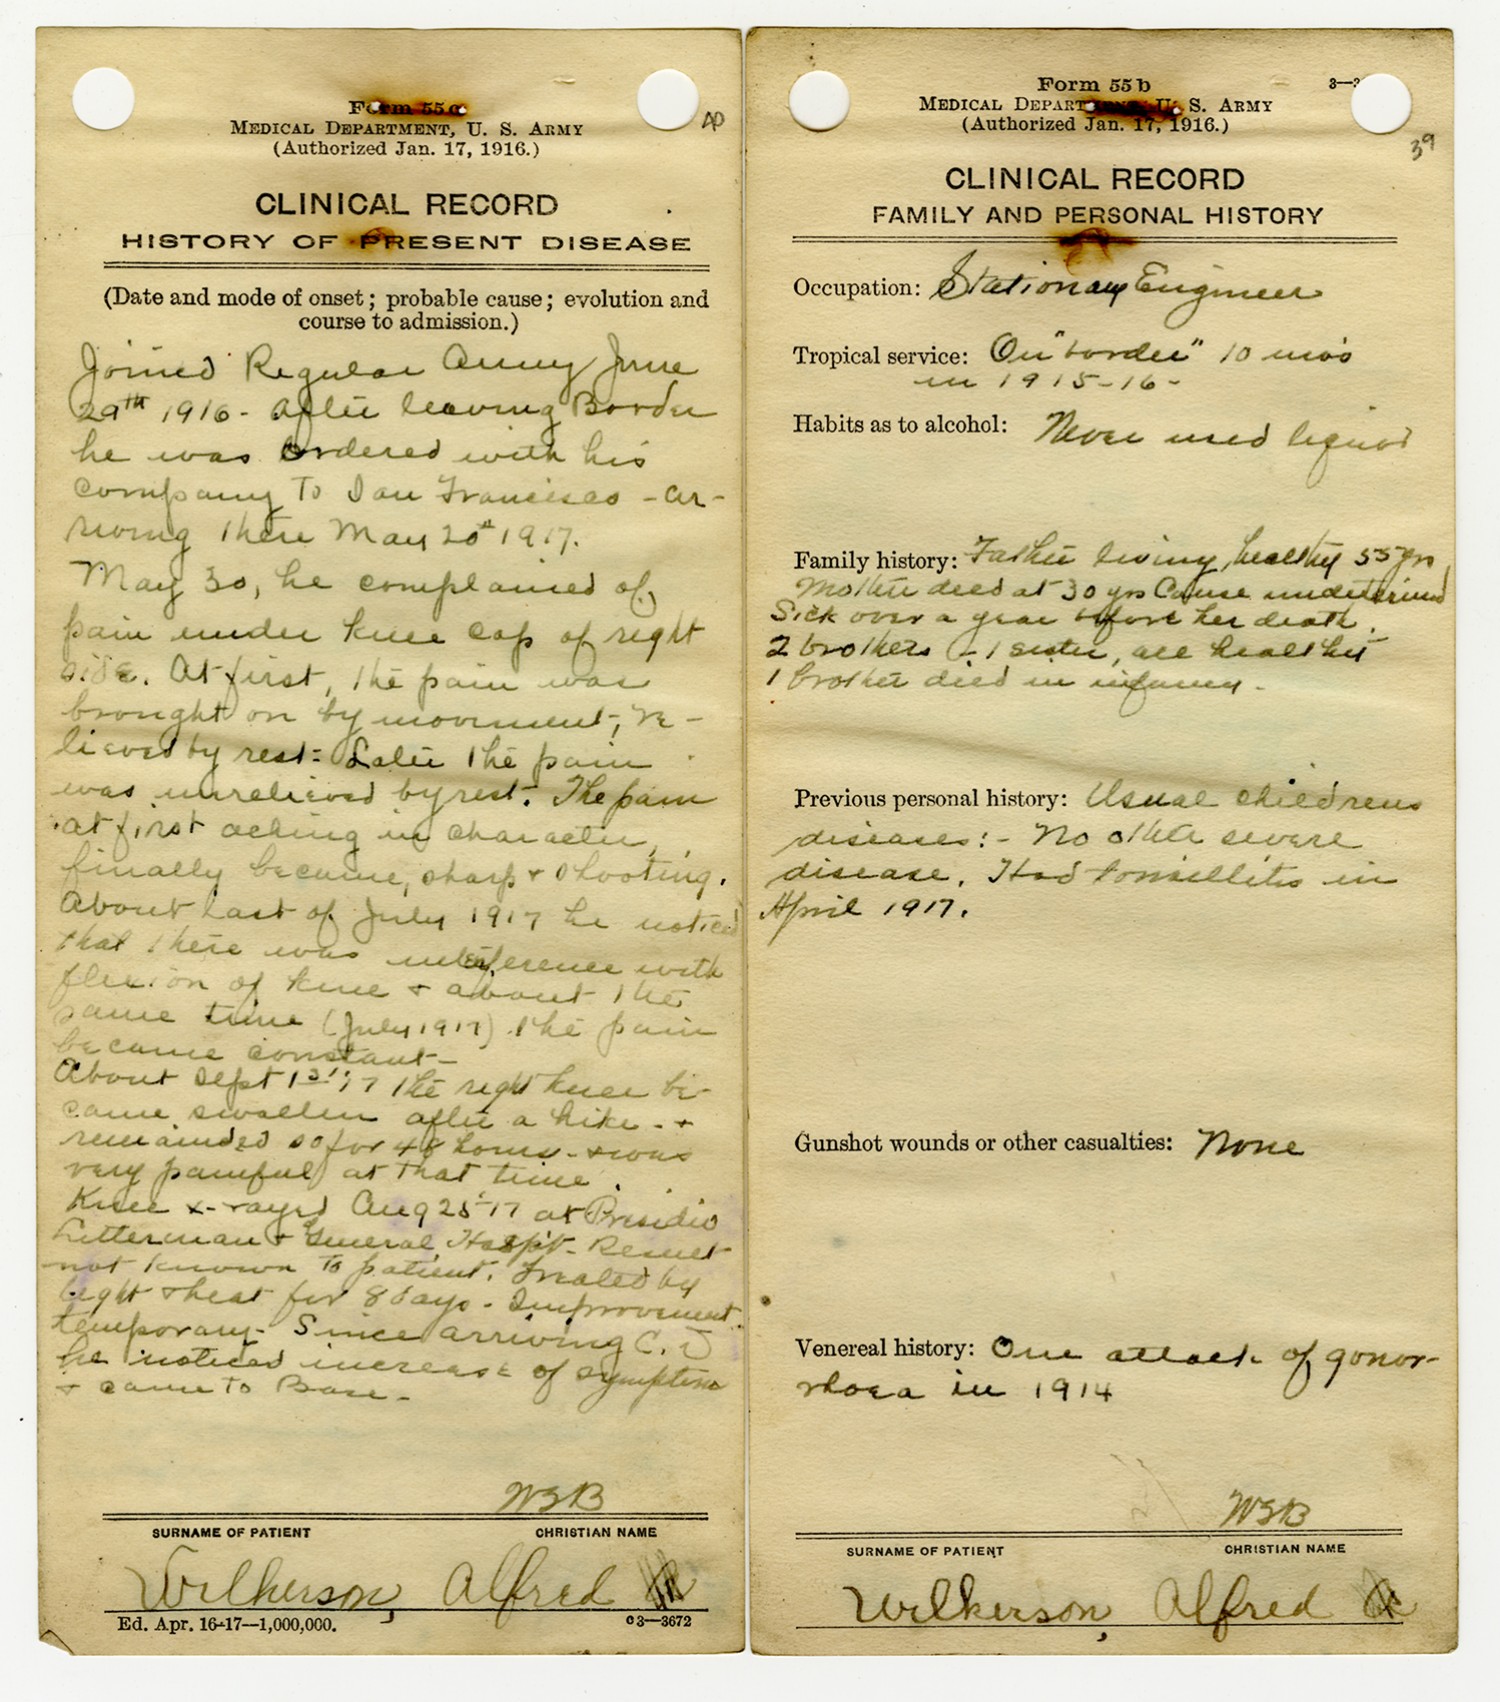 Form 55a
MEDICAL DEPARTMENT, U. S. ARMY
(Authorized Jan. 17, 1916.)
CLINICAL RECORD
HISTORY OF PRESENT DISEASE
(Date and mode of onset; probable cause; evolution and
course to admission.)
Joined Regular Army June
29th 1916 - After leaving Border
he was ordered with his
company To San Francisco - ar-
riving there May 20th 1917.
May 30, he complained of
pain under knee cap of right
side. At first, the pain was
brought on by movement, re-
lieved by rest - Later the pain
was unrelieved by rest. The pain
at first aching in character,
finally became, sharp + shooting.
About last of July 1917 he noticed
that there was interference with
flexion of knee + about the
same time (July 1917) the pain
became constant -
About Sept 1st 17 the right knee be-
came swollen after a hike - +
remainded so for 48 hours - + was
very painful at that time.
Knee x-rayed Aug 25-17 at Presidio
Letterman + General Hospt - Result
not known To patient. Treated by
light + heat for 8 days - Improvement
temporary - Since arriving C.
he noticed increase of symptoms
+ came To Base -
WSB
SURNAME OF PATIENT CHRISTIAN NAME
Wilkerson, Alfred
Ed. Apr. 16-17—1,000,000. c3—3672
40
Form 55b
3—3
MEDICAL DEPARTMENT, U. S. ARMY
(Authorized Jan. 17, 1916.)
39
CLINICAL RECORD
FAMILY AND PERSONAL HISTORY
Occupation: Stationary Engineer
Tropical service: On "border" 10 mos
in 1915-16-
Habits as to alcohol: Never used liquor
Family history: Father living, healthy 55 yrs
Mother died at 30 yrs Cause undetermined
Sick over a year before her death.
2 brothers - 1 sister, all healthy
1 brother died in infancy -
Previous personal history: Usual childrens
diseases:- No other severe
disease. Had tonsillitis in
April 1917.
Gunshot wounds or other casualties: None
Venereal history: One attack of gonor-
rhoea in 1914
WSB
SURNAME OF PATIENT CHRISTIAN NAME
Wilkerson, Alfred